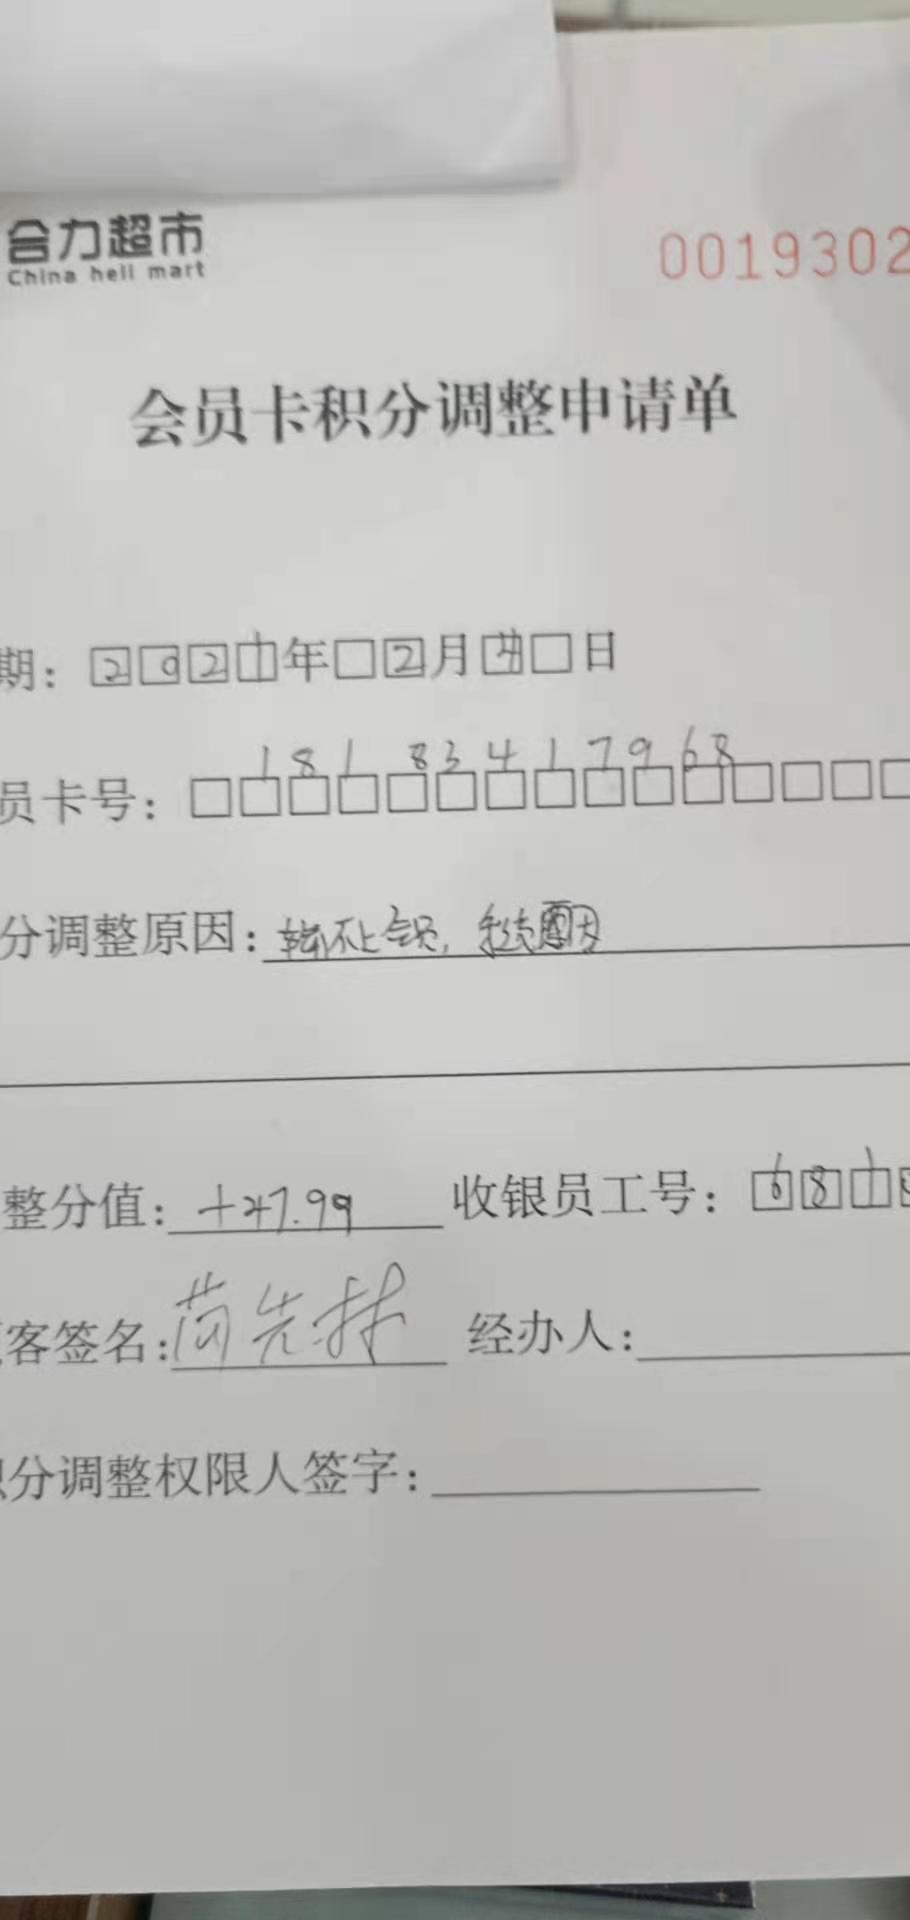 合力超市
China heli mart
0019302
会员卡积分调整申请单
期：2021年2月4日
员卡号：181 834 17968
分调整原因：输不上会员，系统原因
整分值：+27.99 收银员工号：681
客签名： 经办人：
分调整权限人签字：